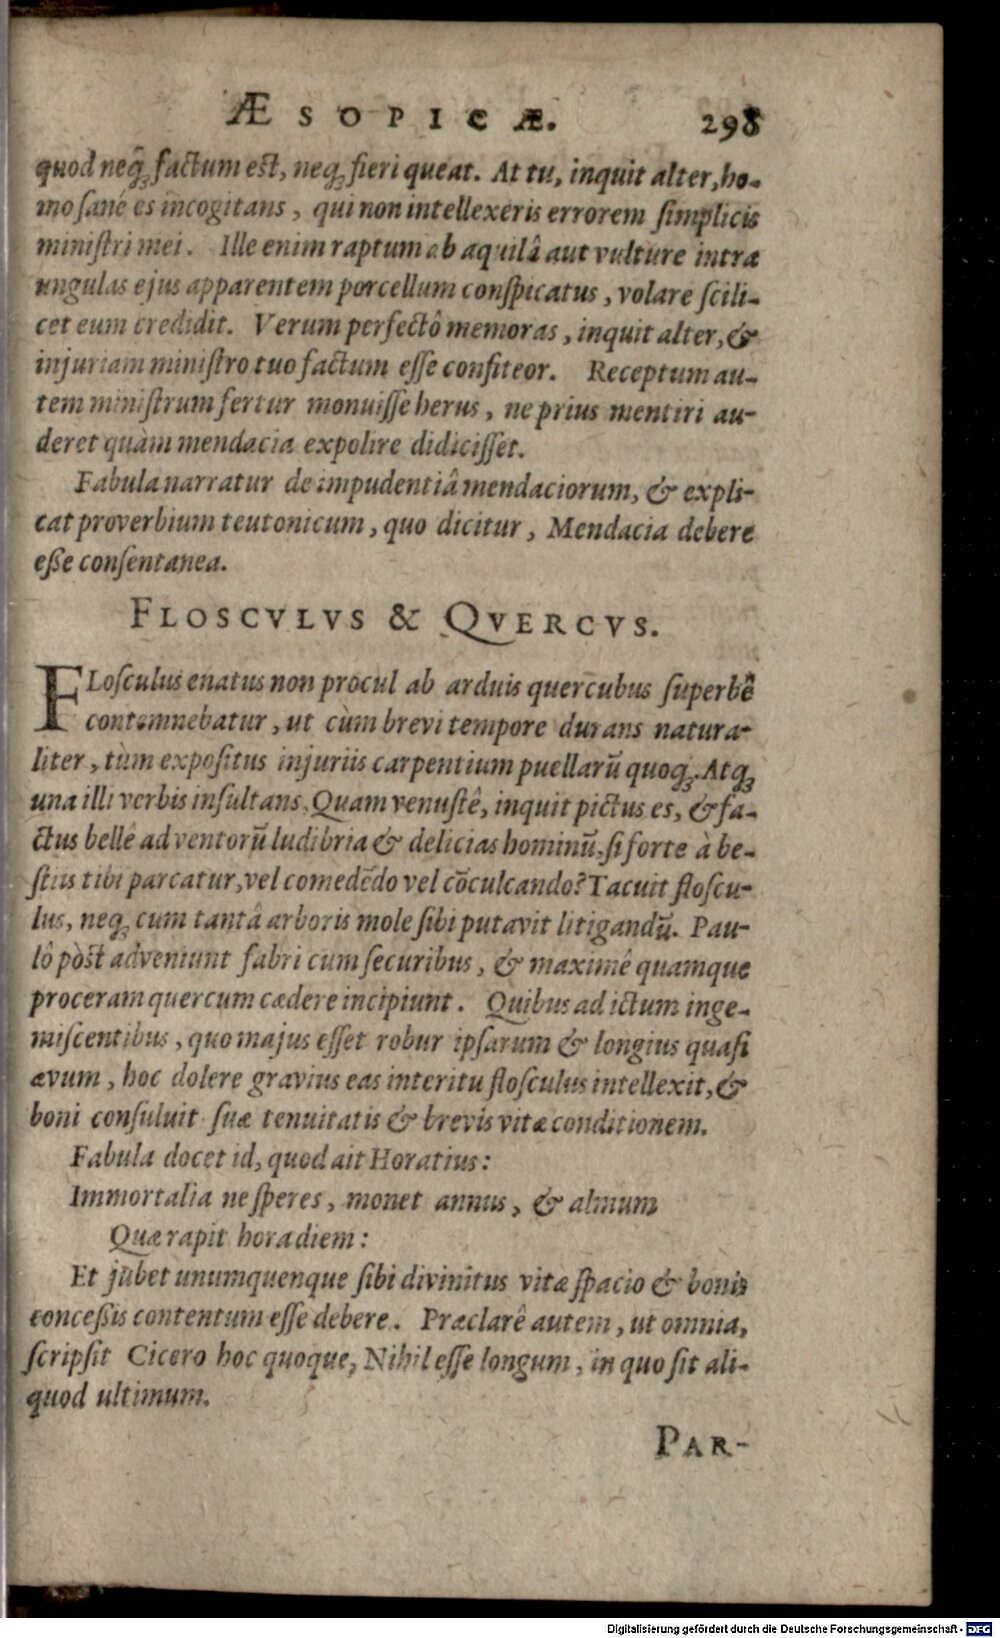 ÆSOPICÆ. 298
quod neq́ꝫ factum est, neqꝫ fieri queat. At tu, inquit alter, ho-
mo sanè es incogitans, qui non intellexeris errorem simplicis
ministri mei. Ille enim raptum ab aquilâ aut vulture intra
ungulas ejus apparentem porcellum conspicatus, volare scili-
cet eum credidit. Verum perfectô memoras, inquit alter, &
injuriam ministro tuo factum esse confiteor. Receptum au-
tem ministrum fertur monuisse herus, ne prius mentiri au-
deret quàm mendacia expolire didicisset.
Fabula narratur de impudentiâ mendaciorum, & expli-
cat proverbium teutonicum, quo dicitur, Mendacia debere
eße consentanea.
FLOSCVLVS & QVERCVS.
FLosculus enatus non procul ab arduis quercubus superbê
contemnebatur, ut cùm brevi tempore durans natura-
liter, tùm expositus injuriis carpentium puellarũ quoqꝫ. Atqꝫ
una illi verbis insultans, Quam venustê, inquit pictus es, & fa-
ctus bellê ad ventorũ ludibria & delicias hominũ, si forte à be-
stiis tibi parcatur, vel comedẽdo vel cõculcando? Tacuit floscu-
lus, neqꝫ cum tantâ arboris mole sibi putavit litigandũ. Pau-
lô pòst adveniunt fabri cum securibus, & maximê quamque
proceram quercum cædere incipiunt. Quibus ad ictum inge-
miscentibus, quo majus esset robur ipsarum & longius quasi
ævum, hoc dolere gravius eas interitu flosculus intellexit, &
boni consuluit suæ tenuitatis & brevis vitæ conditionem.
Fabula docet id, quod ait Horatius:
Immortalia ne speres, monet annus, & almum
Quæ rapit hora diem:
Et jubet unumquenque sibi divinitus vitæ spacio & bonis
conceßis contentum esse debere. Præclarê autem, ut omnia,
scripsit Cicero hoc quoque, Nihil esse longum, in quo sit ali-
quod ultimum.
PAR-
Digitalisierung gefördert durch die Deutsche Forschungsgemeinschaft - DFG